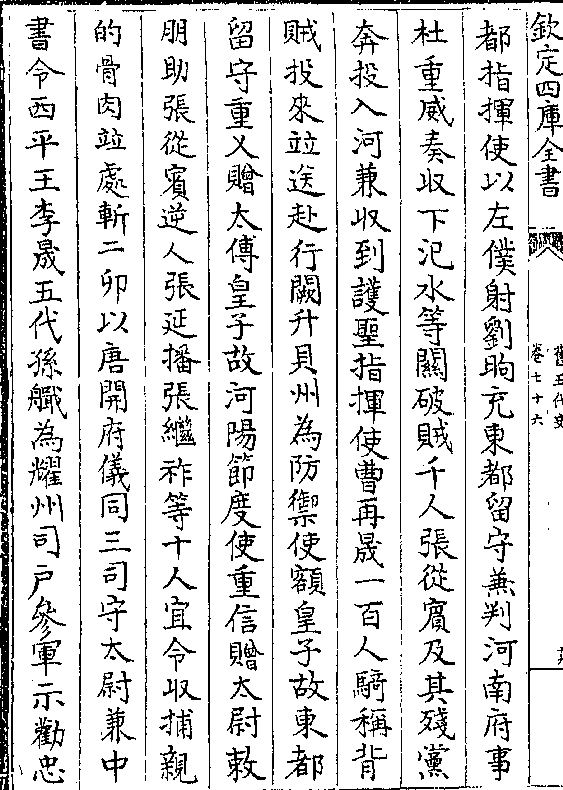 欽定四庫全書
舊五代史
卷七十六
都指揮使以左僕射劉昫充東都留守兼判河南府事
杜重威奏收下汜水等關破賊千人張從賓及其殘黨
奔投入河兼收到護聖指揮使曹再晟一百人騎稱背
賊投來竝送赴行闕升貝州為防禦使額皇子故東都
留守重乂贈太傅皇子故河陽節度使重信贈太尉敕
朋助張從賓逆人張延播張繼祚等十人宜令收捕親
的骨肉竝處斬二卯以唐開府儀同三司守太尉兼中
書令西平王李晟五代孫艬為耀州司戶參軍示勸忠